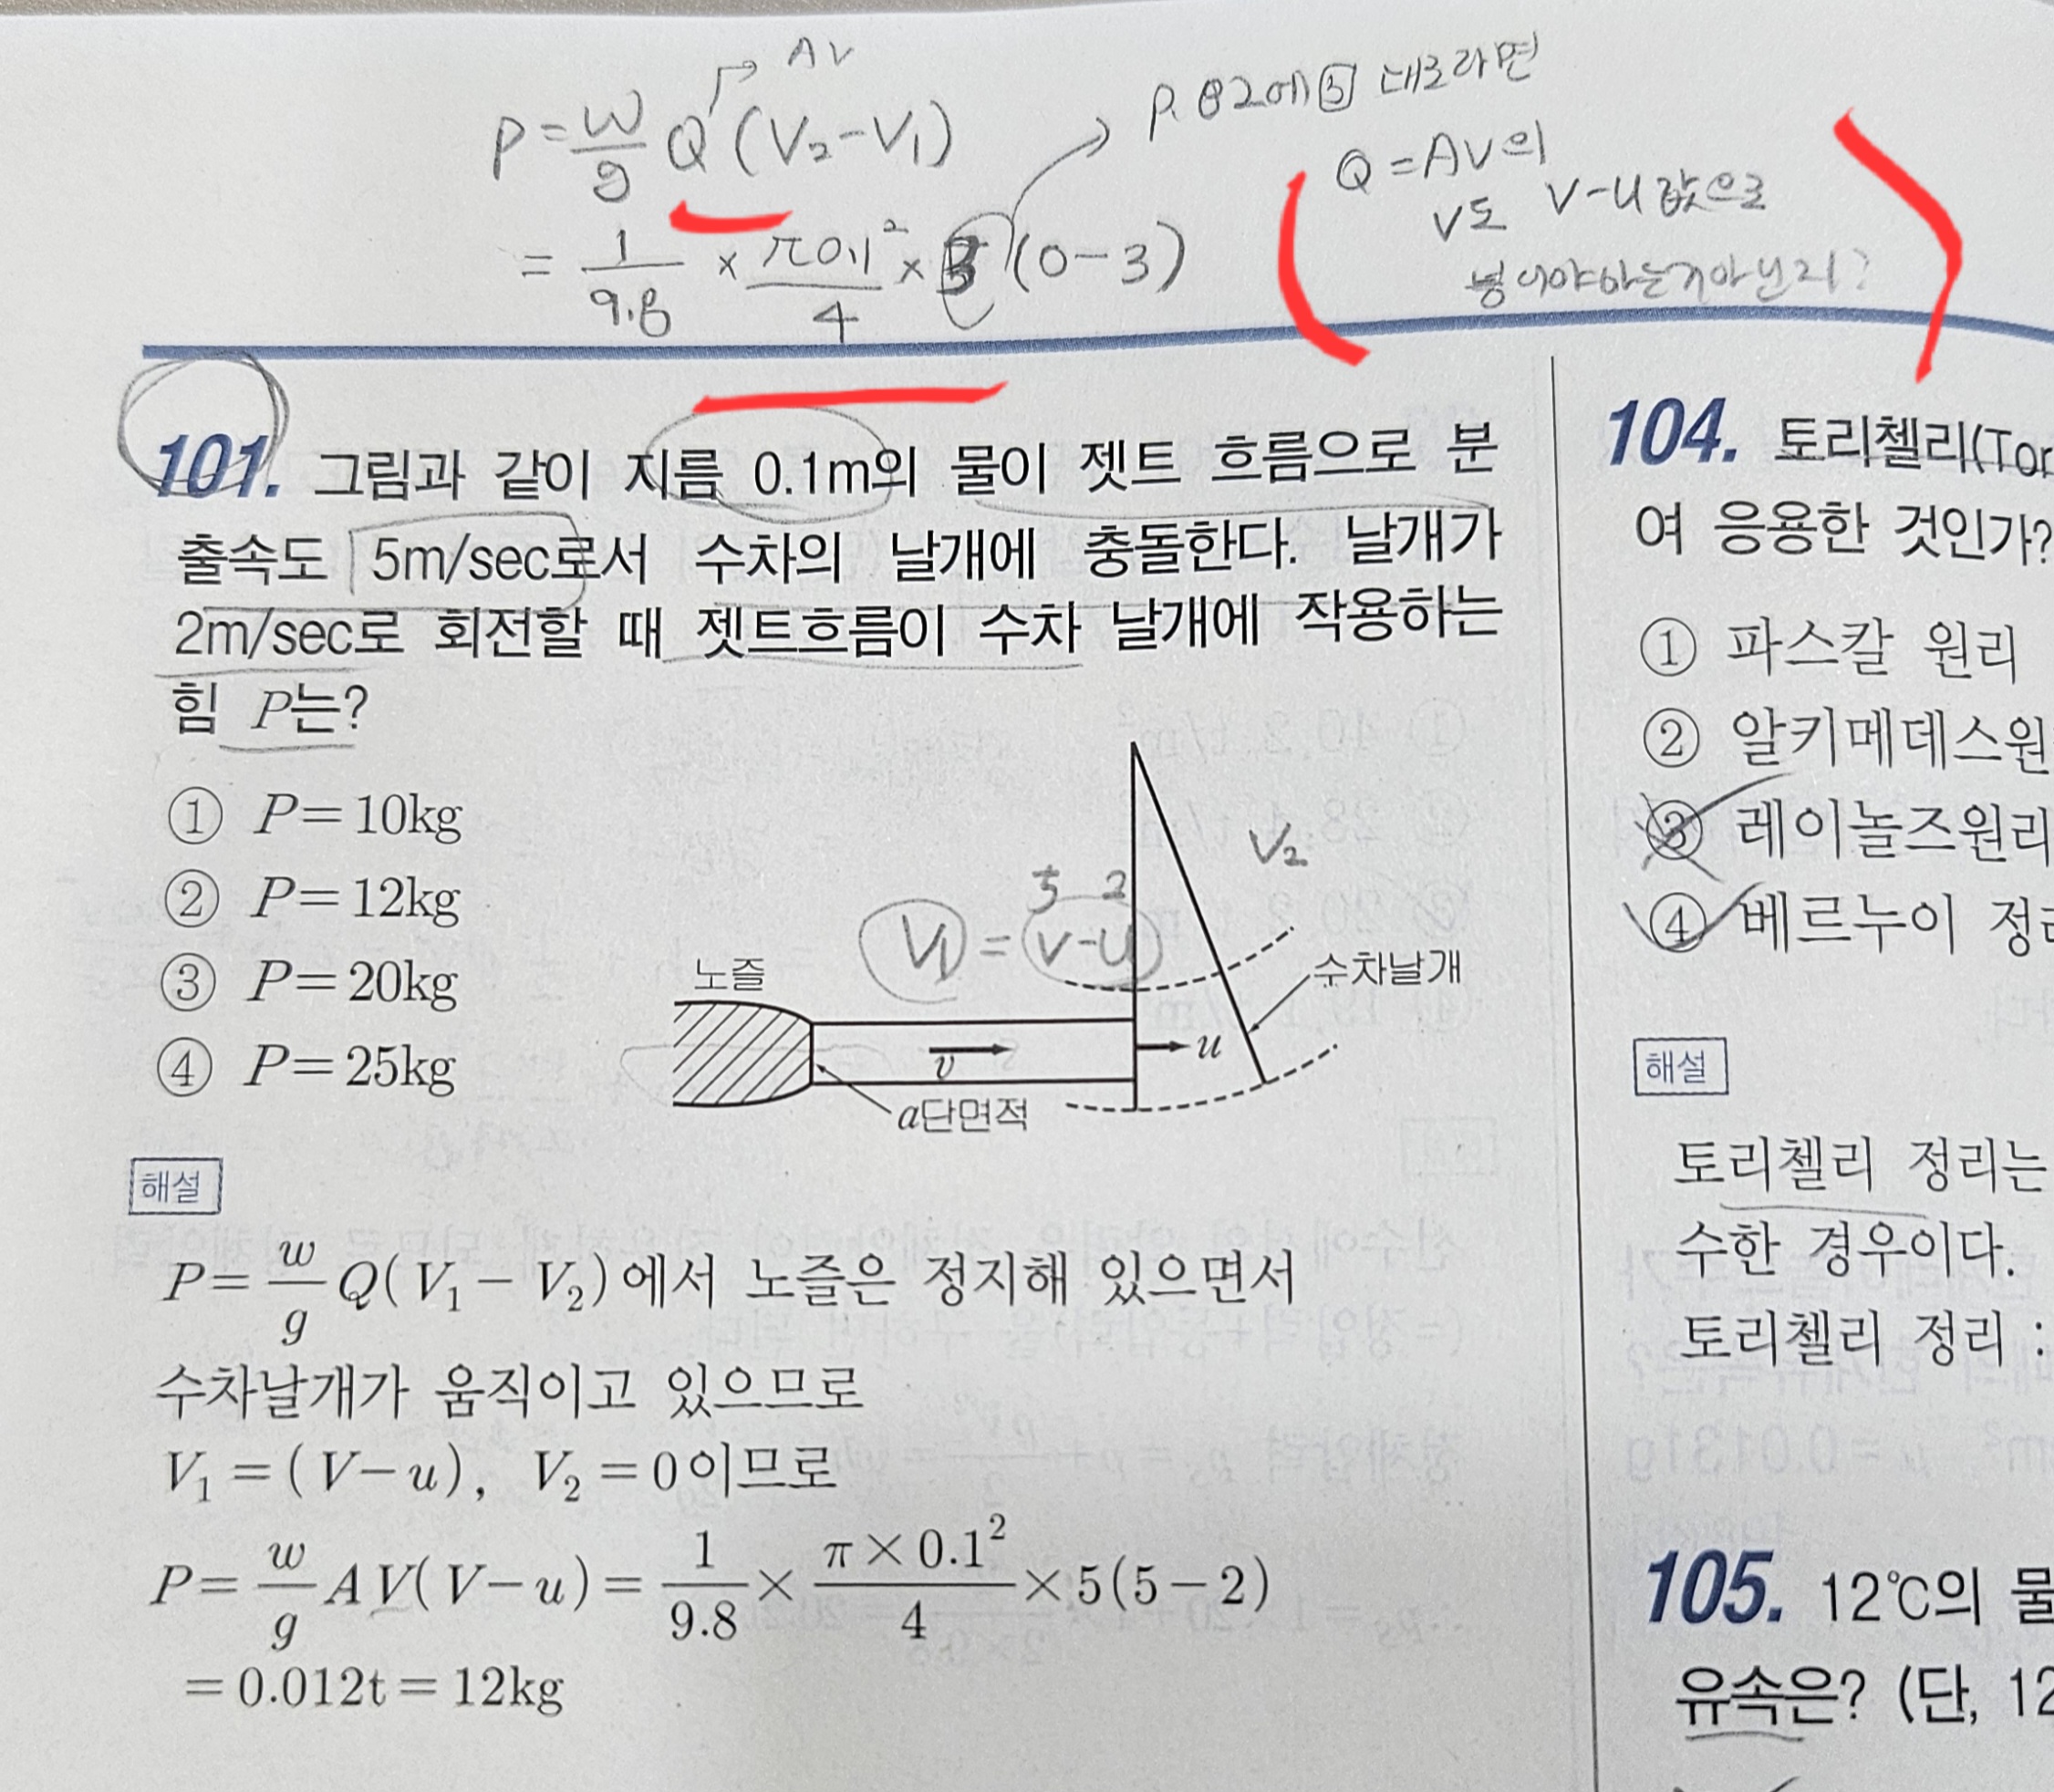 P = w/g Q (V₂-V₁)
AV
= 1/9.8 × π0.1²/4 × 3 (0-3)
P.82에 ③ 대로라면
Q = AV의
V도 V-u 값으로
넣어야하는거아닌지?
101. 그림과 같이 지름 0.1m의 물이 젯트 흐름으로 분
출속도 5m/sec로서 수차의 날개에 충돌한다. 날개가
2m/sec로 회전할 때 젯트흐름이 수차 날개에 작용하는
힘 P는?
① P=10kg
② P=12kg
③ P=20kg
④ P=25kg
V₂
5 2
V₁ = V-u
노즐
수차날개
v
u
a단면적
해설
P= w/g Q(V₁- V₂)에서 노즐은 정지해 있으면서
수차날개가 움직이고 있으므로
V₁=(V-u), V₂=0이므로
P= w/g AV(V-u)= 1/9.8 × π×0.1²/4 ×5(5-2)
=0.012t=12kg
104. 토리첼리(Tor
여 응용한 것인가?
① 파스칼 원리
② 알키메데스원
③ 레이놀즈원리
④ 베르누이 정리
해설
토리첼리 정리는
수한 경우이다.
토리첼리 정리 :
105. 12℃의 물
유속은? (단, 12